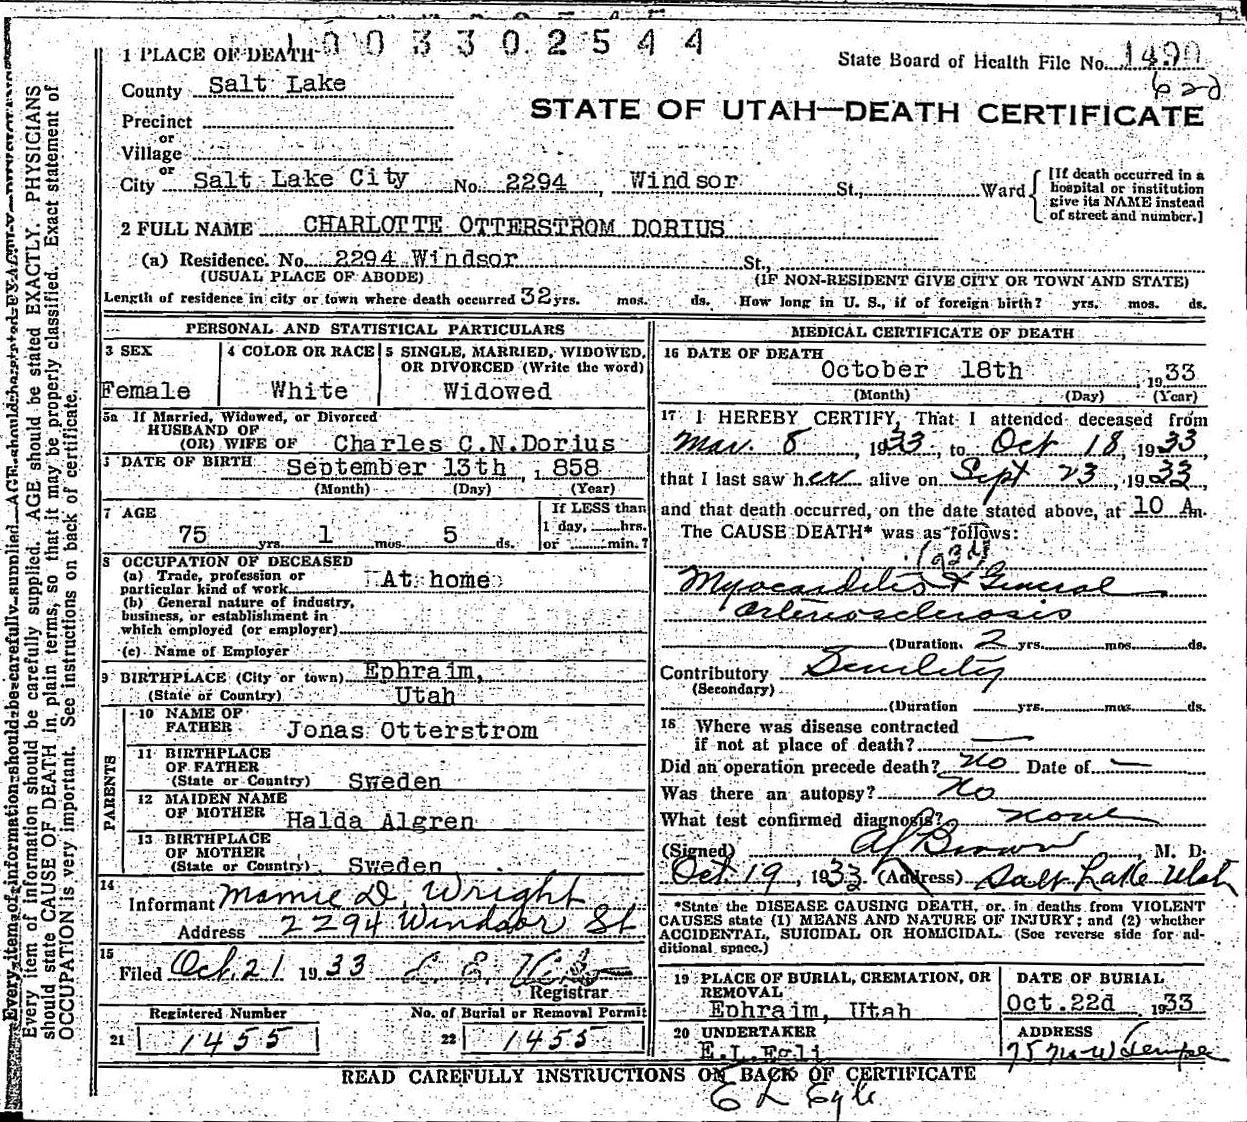 1003302544
1 PLACE OF DEATH
State Board of Health File No. 1490
County Salt Lake
STATE OF UTAH—DEATH CERTIFICATE
Precinct
or
Village
or
City Salt Lake City No. 2294, Windsor St., Ward
[If death occurred in a
hospital or institution
give its NAME instead
of street and number.]
2 FULL NAME CHARLOTTE OTTERSTROM DORIUS
(a) Residence. No. 2294 Windsor St.,
(USUAL PLACE OF ABODE) (IF NON-RESIDENT GIVE CITY OR TOWN AND STATE)
Length of residence in city or town where death occurred 32 yrs. mos. ds. How long in U. S., if of foreign birth? yrs. mos. ds.
PERSONAL AND STATISTICAL PARTICULARS
3 SEX 4 COLOR OR RACE 5 SINGLE, MARRIED, WIDOWED,
OR DIVORCED (Write the word)
Female White Widowed
5a If Married, Widowed, or Divorced
HUSBAND OF
(OR) WIFE OF Charles C.N.Dorius
DATE OF BIRTH September 13th, 1858
(Month) (Day) (Year)
7 AGE If LESS than
1 day, hrs.
75 yrs. 1 mos. 5 ds. or min.?
8 OCCUPATION OF DECEASED
(a) Trade, profession or
particular kind of work At home
(b) General nature of industry,
business, or establishment in
which employed (or employer)
(c) Name of Employer
9 BIRTHPLACE (City or town) Ephraim,
(State or Country) Utah
PARENTS
10 NAME OF
FATHER Jonas Otterstrom
11 BIRTHPLACE
OF FATHER
(State or Country) Sweden
12 MAIDEN NAME
OF MOTHER Halda Algren
13 BIRTHPLACE
OF MOTHER
(State or Country) Sweden
14
Informant Mamie D. Wright
Address 2294 Windsor St
15
Filed Oct. 21 1933
Registrar
Registered Number No. of Burial or Removal Permit
21 1455 22 1455
MEDICAL CERTIFICATE OF DEATH
16 DATE OF DEATH
October 18th, 1933
(Month) (Day) (Year)
17 I HEREBY CERTIFY, That I attended deceased from
Mar. 8, 1933, to Oct 18, 1933,
that I last saw her alive on Sept 23, 1933,
and that death occurred, on the date stated above, at 10 A m.
The CAUSE DEATH* was as follows:
Myocarditis & General
arteriosclerosis
(Duration. 2 yrs. mos. ds.
Contributory Senility
(Secondary)
(Duration yrs. mos. ds.
18 Where was disease contracted
if not at place of death? —
Did an operation precede death? No Date of —
Was there an autopsy? No
What test confirmed diagnosis? none
(Signed) Brown M. D.
Oct 19, 1933 (Address) Salt Lake Utah
*State the DISEASE CAUSING DEATH, or, in deaths from VIOLENT
CAUSES state (1) MEANS AND NATURE OF INJURY; and (2) whether
ACCIDENTAL, SUICIDAL OR HOMICIDAL. (See reverse side for ad-
ditional space.)
19 PLACE OF BURIAL, CREMATION, OR
REMOVAL
Ephraim, Utah
DATE OF BURIAL
Oct. 22d 1933
20 UNDERTAKER
E.L.Egli
ADDRESS
READ CAREFULLY INSTRUCTIONS ON BACK OF CERTIFICATE
Every item of information should be carefully supplied. AGE should be stated EXACTLY. PHYSICIANS
should state CAUSE OF DEATH in plain terms, so that it may be properly classified. Exact statement of
OCCUPATION is very important. See instructions on back of certificate.